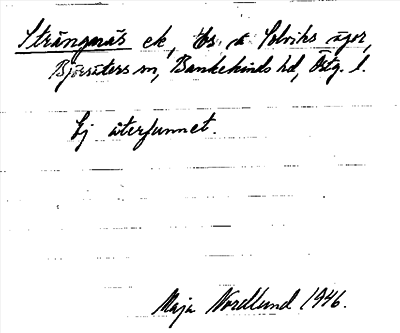 Strängnäs ek, Es. å Solviks ägor,
Björsäters sn, Bankekinds hd, Östg. l.
Ej återfunnet.
Maja Nordlund 1946.